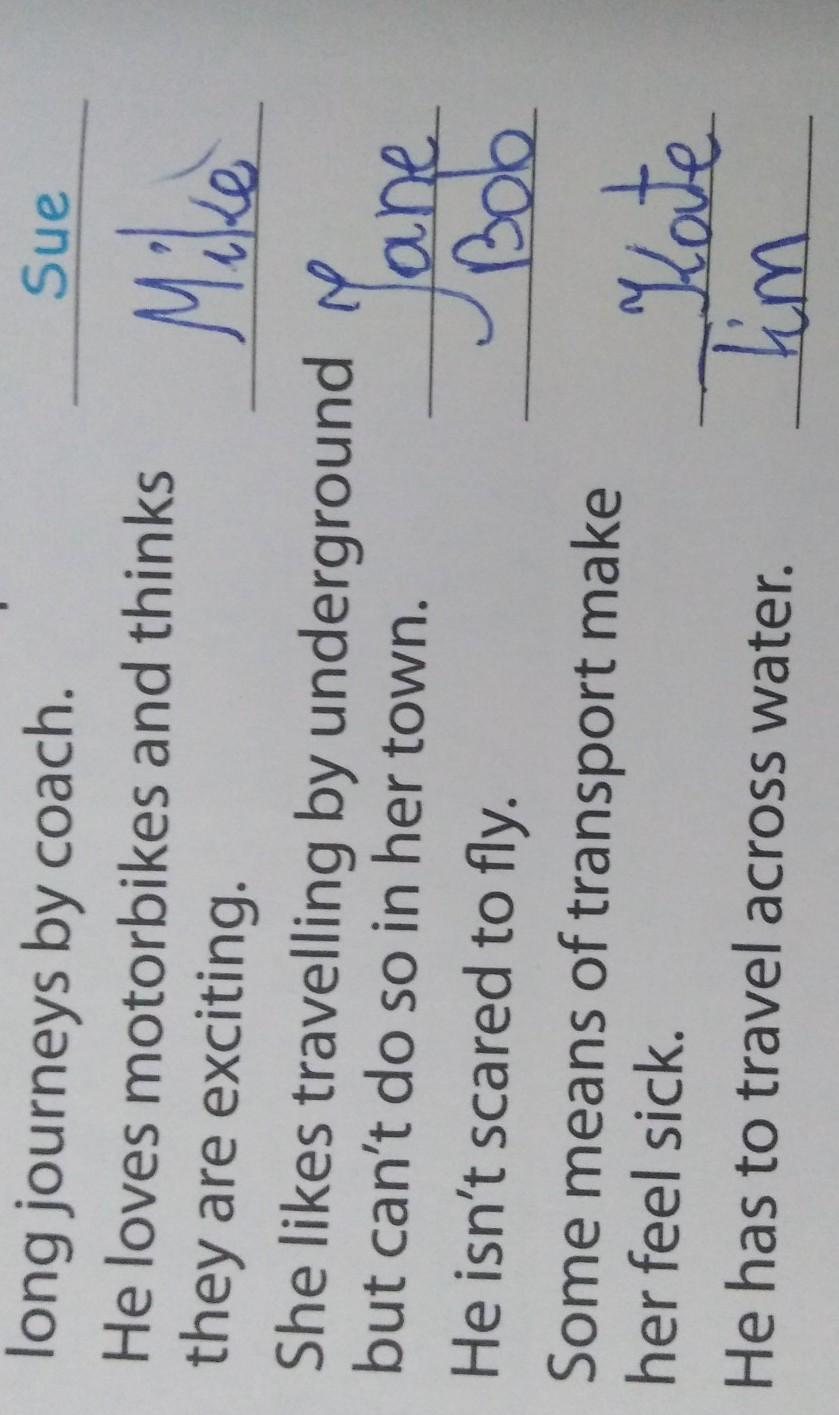 long journeys by coach. Sue
He loves motorbikes and thinks
they are exciting. Mike
She likes travelling by underground
but can't do so in her town. Jane
He isn't scared to fly. Bob
Some means of transport make
her feel sick. Kate
He has to travel across water. Tim